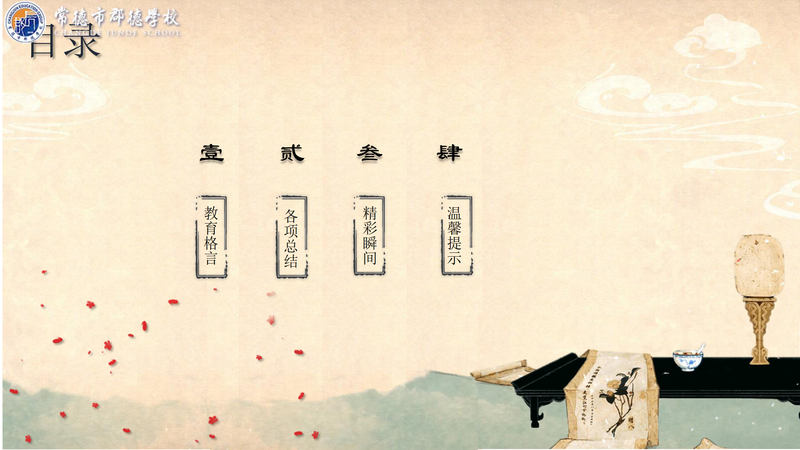 常德市邵德学校
CHANGDE JUNDE SCHOOL
目录
壹
贰
叁
肆
教育格言
各项总结
精彩瞬间
温馨提示